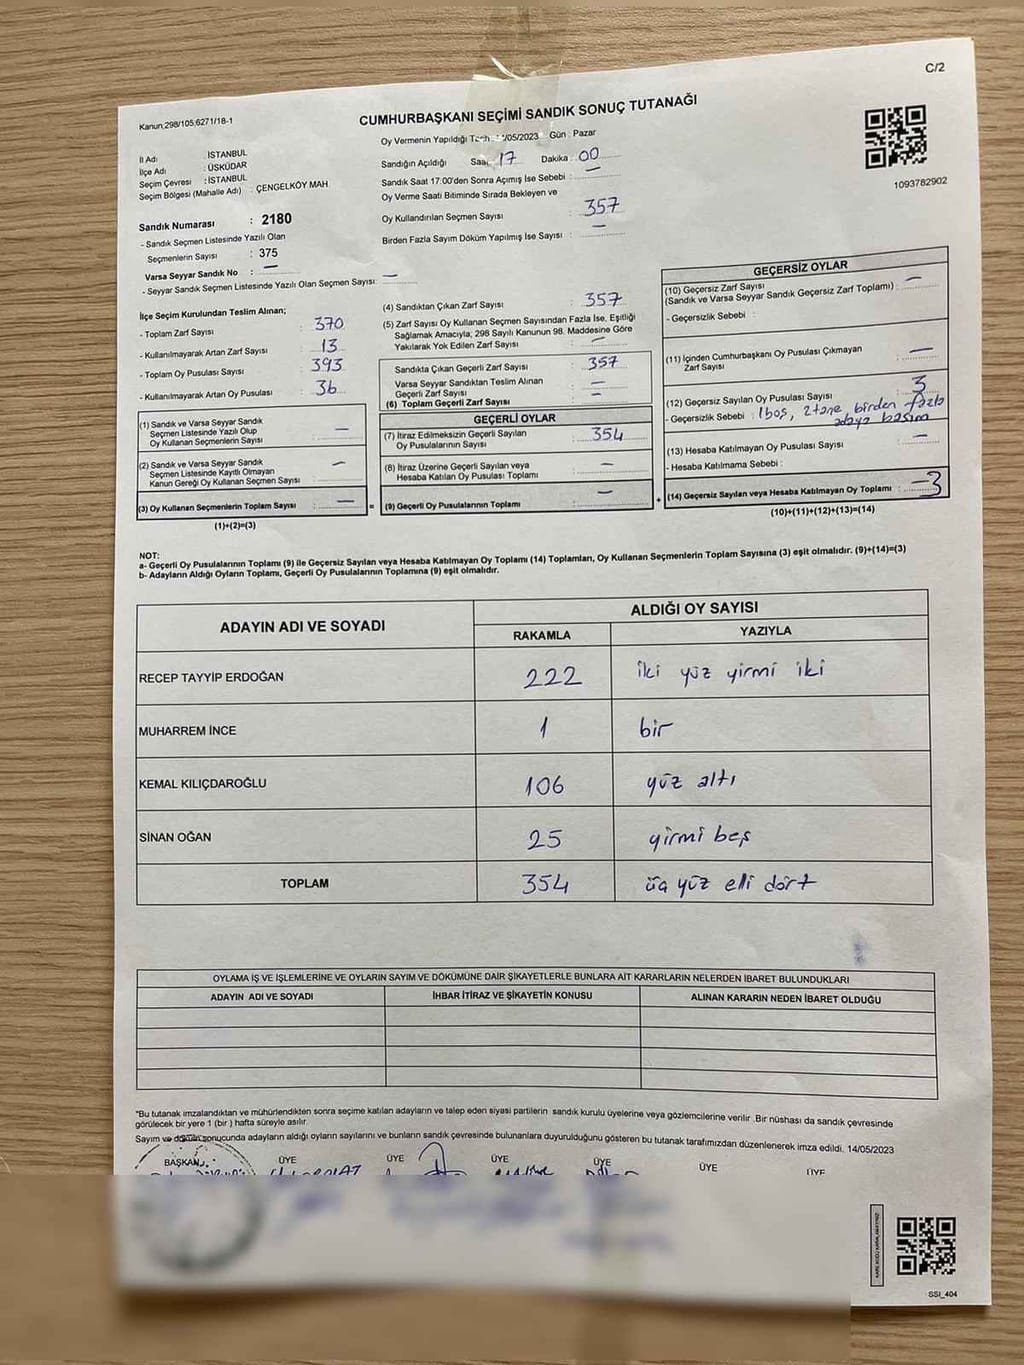 C/2
Kanun,298/105,6271/18-1
CUMHURBAŞKANI SEÇİMİ SANDIK SONUÇ TUTANAĞI
Oy Vermenin Yapıldığı /05/2023 Gün : Pazar
İl Adı : İSTANBUL
İlçe Adı : ÜSKÜDAR
Seçim Çevresi : İSTANBUL
Seçim Bölgesi (Mahalle Adı) : ÇENGELKÖY MAH
Sandığın Açıldığı Saat 17 Dakika : 00
Sandık Saat 17:00'den Sonra Açımış İse Sebebi : —
Oy Verme Saati Bitiminde Sırada Bekleyen ve
Oy Kullandırılan Seçmen Sayısı : 357
Birden Fazla Sayım Döküm Yapılmış İse Sayısı : —
1093782902
Sandık Numarası : 2180
- Sandık Seçmen Listesinde Yazılı Olan
Seçmenlerin Sayısı : 375
Varsa Seyyar Sandık No : —
- Seyyar Sandık Seçmen Listesinde Yazılı Olan Seçmen Sayısı: —
İlçe Seçim Kurulundan Teslim Alınan;
- Toplam Zarf Sayısı : 370
- Kullanılmayarak Artan Zarf Sayısı : 13
- Toplam Oy Pusulası Sayısı : 393
- Kullanılmayarak Artan Oy Pusulası : 36
(1) Sandık ve Varsa Seyyar Sandık
Seçmen Listesinde Yazılı Olup
Oy Kullanan Seçmenlerin Sayısı : —
(2) Sandık ve Varsa Seyyar Sandık
Seçmen Listesinde Kayıtlı Olmayan
Kanun Gereği Oy Kullanan Seçmen Sayısı : —
(3) Oy Kullanan Seçmenlerin Toplam Sayısı : —
(1)+(2)=(3)
(4) Sandıktan Çıkan Zarf Sayısı : 357
(5) Zarf Sayısı Oy Kullanan Seçmen Sayısından Fazla İse, Eşitliği
Sağlamak Amacıyla; 298 Sayılı Kanunun 98. Maddesine Göre
Yakılarak Yok Edilen Zarf Sayısı : —
Sandıkta Çıkan Geçerli Zarf Sayısı : 357
Varsa Seyyar Sandıktan Teslim Alınan
Geçerli Zarf Sayısı : —
(6) Toplam Geçerli Zarf Sayısı : —
GEÇERLİ OYLAR
(7) İtiraz Edilmeksizin Geçerli Sayılan
Oy Pusulalarının Sayısı : 354
(8) İtiraz Üzerine Geçerli Sayılan veya
Hesaba Katılan Oy Pusulası Toplamı : —
= (9) Geçerli Oy Pusulalarının Toplamı : —
GEÇERSİZ OYLAR
(10) Geçersiz Zarf Sayısı
(Sandık ve Varsa Seyyar Sandık Geçersiz Zarf Toplamı) : —
- Geçersizlik Sebebi :
(11) İçinden Cumhurbaşkanı Oy Pusulası Çıkmayan
Zarf Sayısı : —
(12) Geçersiz Sayılan Oy Pusulası Sayısı : 3
- Geçersizlik Sebebi : 1 boş, 2 tane birden fazla
adaya basım
(13) Hesaba Katılmayan Oy Pusulası Sayısı : —
- Hesaba Katılmama Sebebi :
+ (14) Geçersiz Sayılan veya Hesaba Katılmayan Oy Toplamı : —3
(10)+(11)+(12)+(13)=(14)
NOT:
a- Geçerli Oy Pusulalarının Toplamı (9) ile Geçersiz Sayılan veya Hesaba Katılmayan Oy Toplamı (14) Toplamları, Oy Kullanan Seçmenlerin Toplam Sayısına (3) eşit olmalıdır. (9)+(14)=(3)
b- Adayların Aldığı Oyların Toplamı, Geçerli Oy Pusulalarının Toplamına (9) eşit olmalıdır.
ADAYIN ADI VE SOYADI ALDIĞI OY SAYISI
RAKAMLA YAZIYLA
RECEP TAYYİP ERDOĞAN 222 iki yüz yirmi iki
MUHARREM İNCE 1 bir
KEMAL KILIÇDAROĞLU 106 yüz altı
SİNAN OĞAN 25 yirmi beş
TOPLAM 354 üç yüz elli dört
OYLAMA İŞ VE İŞLEMLERİNE VE OYLARIN SAYIM VE DÖKÜMÜNE DAİR ŞİKAYETLERLE BUNLARA AİT KARARLARIN NELERDEN İBARET BULUNDUKLARI
ADAYIN ADI VE SOYADI İHBAR İTİRAZ VE ŞİKAYETİN KONUSU ALINAN KARARIN NEDEN İBARET OLDUĞU
*Bu tutanak imzalandıktan ve mühürlendikten sonra seçime katılan adayların ve talep eden siyasi partilerin sandık kurulu üyelerine veya gözlemcilerine verilir. Bir nüshası da sandık çevresinde
görülecek bir yere 1 (bir) hafta süreyle asılır.
Sayım ve döküm sonucunda adayların aldığı oyların sayılarını ve bunların sandık çevresinde bulunanlara duyurulduğunu gösteren bu tutanak tarafımızdan düzenlenerek imza edildi. 14/05/2023
BAŞKAN ÜYE ÜYE ÜYE ÜYE ÜYE ÜYE
SSI_404